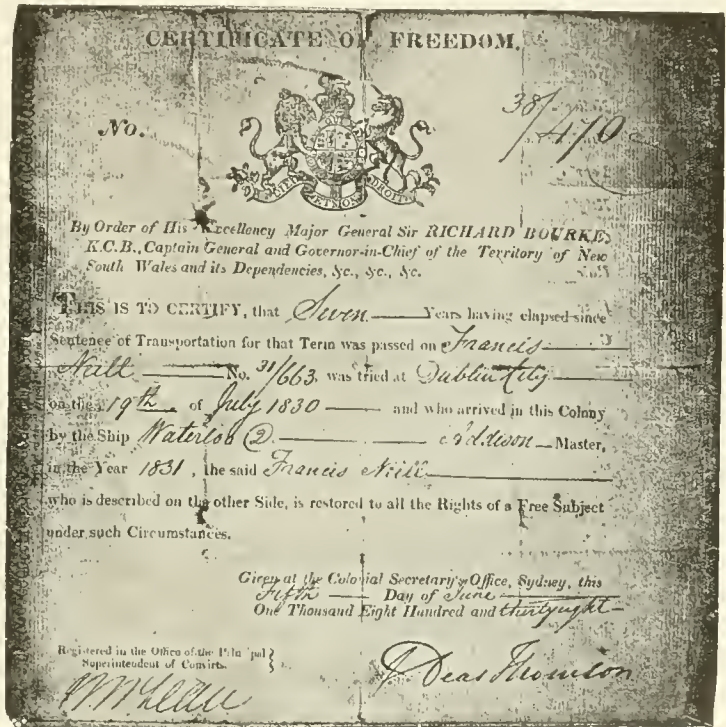 CERTIFICATE OF FREEDOM.
No. 38/470
DIEU ET MON DROIT
By Order of His Excellency Major General Sir RICHARD BOURKE,
K.C.B., Captain General and Governor-in-Chief of the Territory of New
South Wales and its Dependencies, &c., &c., &c.
THIS IS TO CERTIFY, that Seven Years having elapsed since
Sentence of Transportation for that Term was passed on Francis
Neill No. 31/663, was tried at Dublin City
on the 19th of July 1830 and who arrived in this Colony
by the Ship Waterloo (2) Addison Master,
in the Year 1831, the said Francis Neill
who is described on the other Side, is restored to all the Rights of a Free Subject
under such Circumstances.
Given at the Colonial Secretary's Office, Sydney, this
Fifth Day of June
One Thousand Eight Hundred and thirty eight
Registered in the Office of the Principal
Superintendent of Convicts.
E Deas Thomson